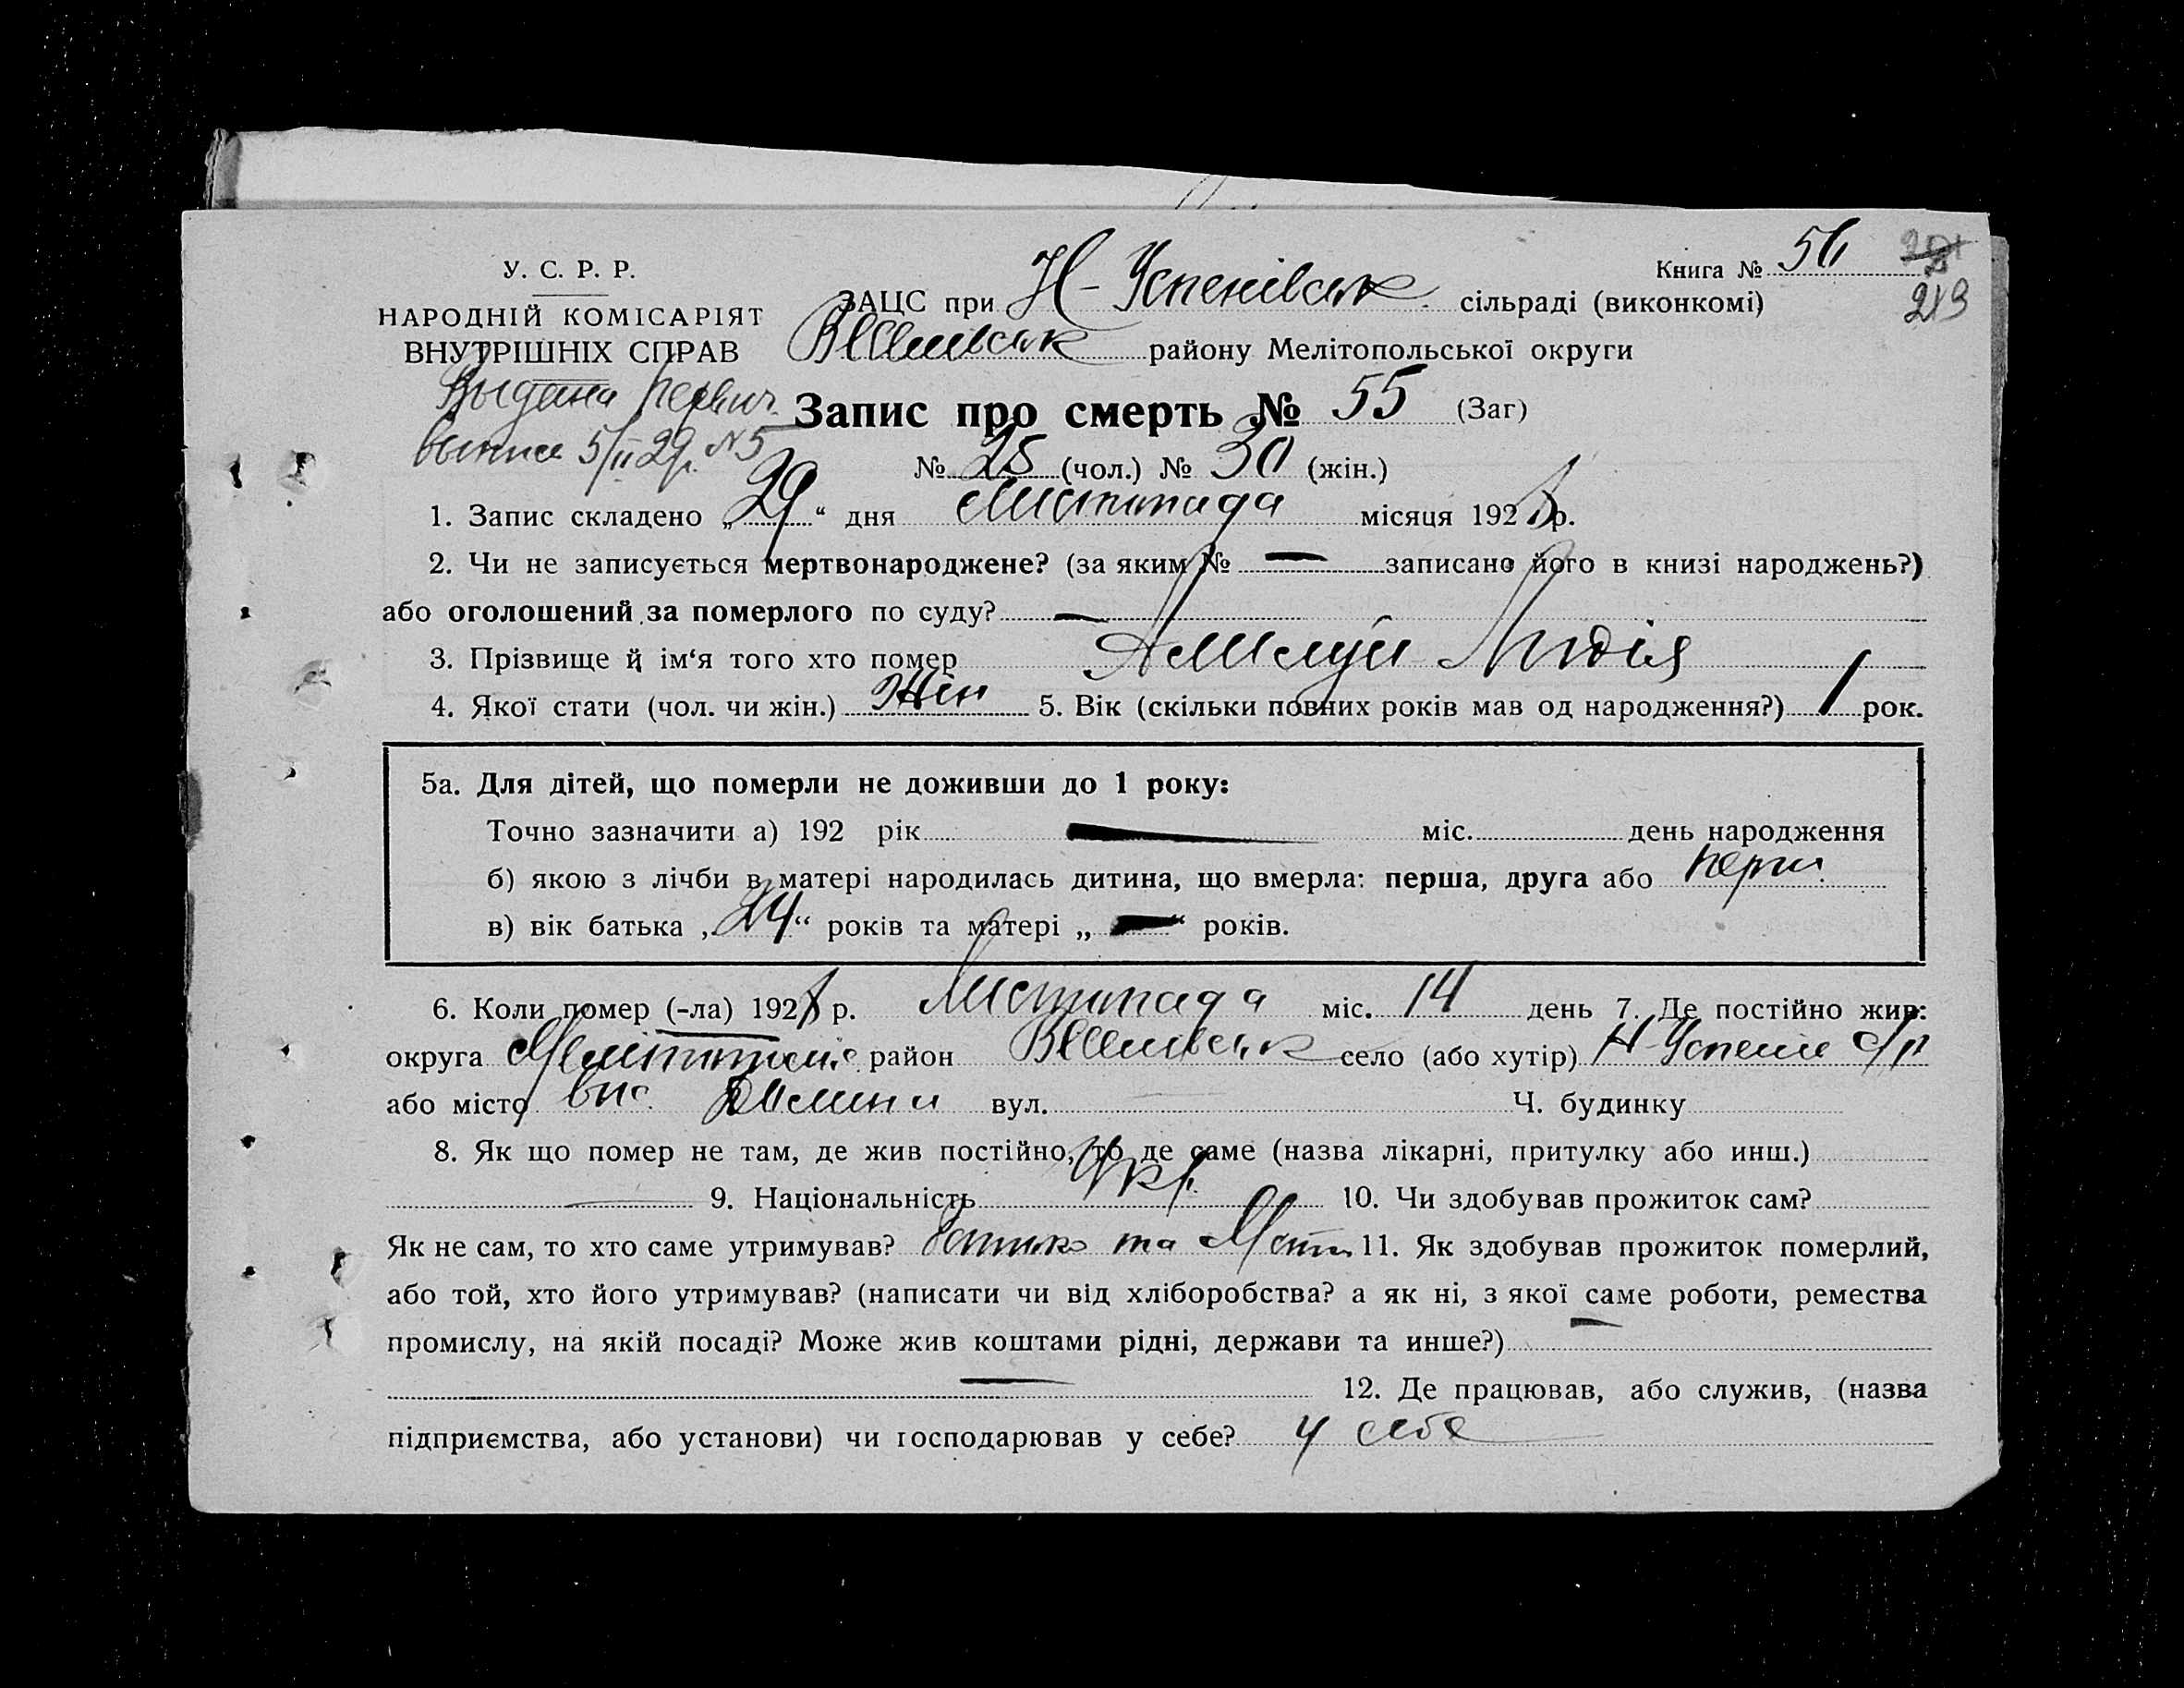 У. С. Р. Р.
НАРОДНІЙ КОМІСАРІЯТ
ВНУТРІШНІХ СПРАВ
Книга № 56
213
ЗАЦС при Н-Успенівськ сільраді (виконкомі)
районy Мелітопольської округи
Запис про смерть № 55 (Заг)
Выдана первич.
5/II 29р. № 5
№ 25 (чол.) № 30 (жін.)
1. Запис складено „29“ дня Листопада місяця 1928 р.
2. Чи не записується мертвонароджене? (за яким № — записано його в книзі народжень?)
або оголошений за померлого по суду? —
3. Прізвище й ім‘я того хто помер Лидія
4. Якої стати (чол. чи жін.) Жін 5. Вік (скільки повних років мав од народження?) 1 рок.
5а. Для дітей, що померли не доживши до 1 року:
Точно зазначити а) 192 рік — міс. день народження
б) якою з лічби в матері народилась дитина, що вмерла: перша, друга або перш.
в) вік батька „24“ років та матері „—“ років.
6. Коли помер (-ла) 1928 р. Листопада міс. 14 день 7. Де постійно жив:
округа район село (або хутір) Н-Успені с/р
або місто вис. вул. Ч. будинку
8. Як що помер не там, де жив постійно, то де саме (назва лікарні, притулку або инш.)
— 9. Національність Укр. 10. Чи здобував прожиток сам?
Як не сам, то хто саме утримував? батько та Мати 11. Як здобував прожиток померлий,
або той, хто його утримував? (написати чи від хліборобства? а як ні, з якої саме роботи, ремества
промислу, на якій посаді? Може жив коштами рідні, держави та инше?) —
— 12. Де працював, або служив, (назва
підприємства, або установи) чи господарював у себе? у себе